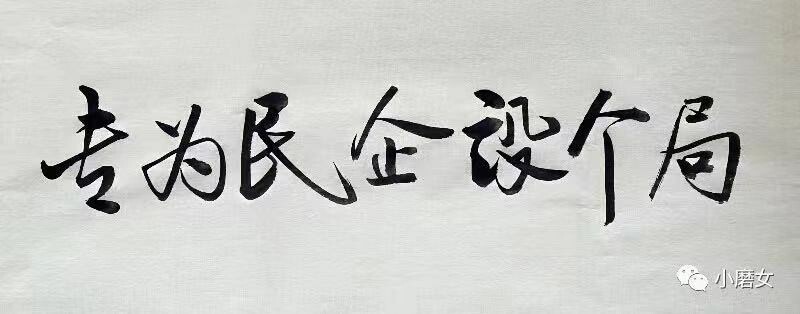 专为民企设个局
小磨女